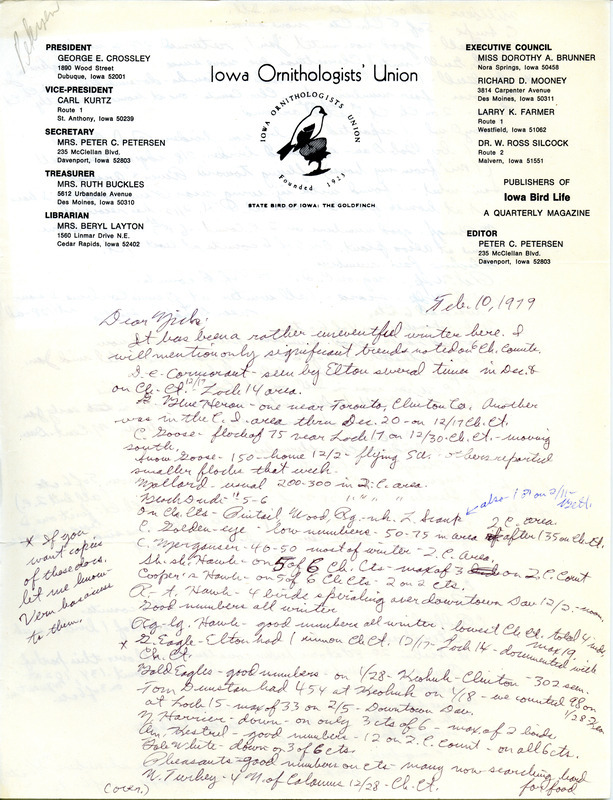 Petersen
PRESIDENT
GEORGE E. CROSSLEY
1890 Wood Street
Dubuque, Iowa 52001
VICE-PRESIDENT
CARL KURTZ
Route 1
St. Anthony, Iowa 50239
SECRETARY
MRS. PETER C. PETERSEN
235 McClellan Blvd.
Davenport, Iowa 52803
TREASURER
MRS. RUTH BUCKLES
5612 Urbandale Avenue
Des Moines, Iowa 50310
LIBRARIAN
MRS. BERYL LAYTON
1560 Linmar Drive N.E.
Cedar Rapids, Iowa 52402
Iowa Ornithologists' Union
IOWA ORNITHOLOGISTS UNION
Founded 1923
STATE BIRD OF IOWA: THE GOLDFINCH
EXECUTIVE COUNCIL
MISS DOROTHY A. BRUNNER
Nora Springs, Iowa 50458
RICHARD D. MOONEY
3814 Carpenter Avenue
Des Moines, Iowa 50311
LARRY K. FARMER
Route 1
Westfield, Iowa 51062
DR. W. ROSS SILCOCK
Route 2
Malvern, Iowa 51551
PUBLISHERS OF
Iowa Bird Life
A QUARTERLY MAGAZINE
EDITOR
PETER C. PETERSEN
235 McClellan Blvd.
Davenport, Iowa 52803
Feb. 10, 1979
Dear Nick:
It has been a rather uneventful winter here. I
will mention only significant trends noted on 6 Ch. Counts.
D. C. Cormorant - seen by Elton several times in Dec. &
on Ch. Ct. 12/17 Lock 14 area.
G. Blue Heron - one near Toronto, Clinton Co. Another
was in the area thru Dec. 20 - on 12/17 Ch. Ct.
C. Goose - flock of 75 near Lock 17 on 12/30 Ch. Ct. - moving
south.
Snow Goose - 150 - home 12/2 - flying - others reported
smaller flocks that week.
Mallard - usual 200-300 in Q.C. area.
Black Duck - " 5-6 " " " "
On Ch. Cts - Pintail, Wood, Rg-nk, L. Scaup also 1 on 2/11
C. Golden-eye - low numbers - 50-75 in Q.C. area after 135 on Ch. Ct.
C. Merganser - 40-50 most of winter - Q.C. Area.
Sh-sh. Hawk - on 5 of 6 Ch. Cts - max of 3 on Q.C. Count
Cooper's Hawk - on 5 of 6 Ch. Cts - 2 on 2 cts.
R-t. Hawk - 4 birds spiraling over downtown Dav 12/2 - noon.
Good numbers all winter
Rg-lg. Hawk - good numbers all winter. lowest Ch. Ct. total 4 max 19
* G. Eagle - Elton had 1 imm on Ch. Ct. 12/17 - Lock 14 - documented with
Ch. Ct.
Bald Eagles - good numbers - on 1/28 - Keokuk - Clinton - 302 seen.
Tom Dunstan had 454 at Keokuk on 1/18 - we counted 98 on 1/28
at Lock 15 - max of 33 on 2/5 - Downtown Dav.
N. Harrier - down - on only 3 cts of 6 - max of 2 birds
Am. Kestrel - good numbers - 12 on Q.C. count - on all 6 cts.
Bobwhite - down on 3 of 6 cts.
Pheasants - good numbers on cts - many now searching hard
for food
W. Turkey - 4 N. of Calamus 12/28 - Ch. Ct.
(over)
* If you
want copies
of these docs.
let me know
Vern has some
to them.